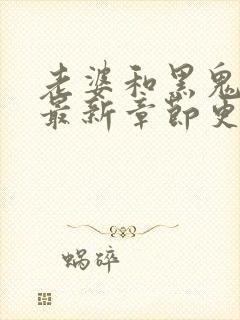 老婆和黑鬼
最新章节史
蜗碎